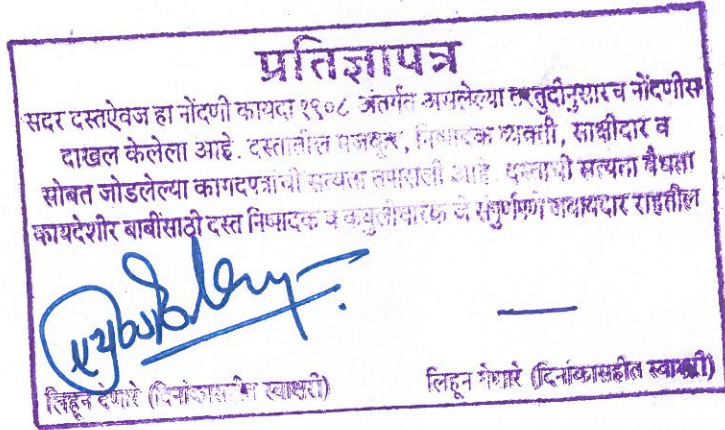 प्रतिज्ञापत्र
सदर दस्तऐवज हा नोंदणी कायदा १९०८ अंतर्गत असलेल्या तरतुदीनुसारच नोंदणीस
दाखल केलेला आहे. दस्तातील मजकूर, निष्पादक व्यक्ती, साक्षीदार व
सोबत जोडलेल्या कागदपत्रांची सत्यता तपासली आहे. दस्ताची सत्यता वैधता
कायदेशीर बाबींसाठी दस्त निष्पादक व कबुलीधारक हे संपुर्णपणे जबाबदार राहतील
लिहून देणारे (दिनांकासहीत स्वाक्षरी) लिहून घेणारे (दिनांकासहीत स्वाक्षरी)